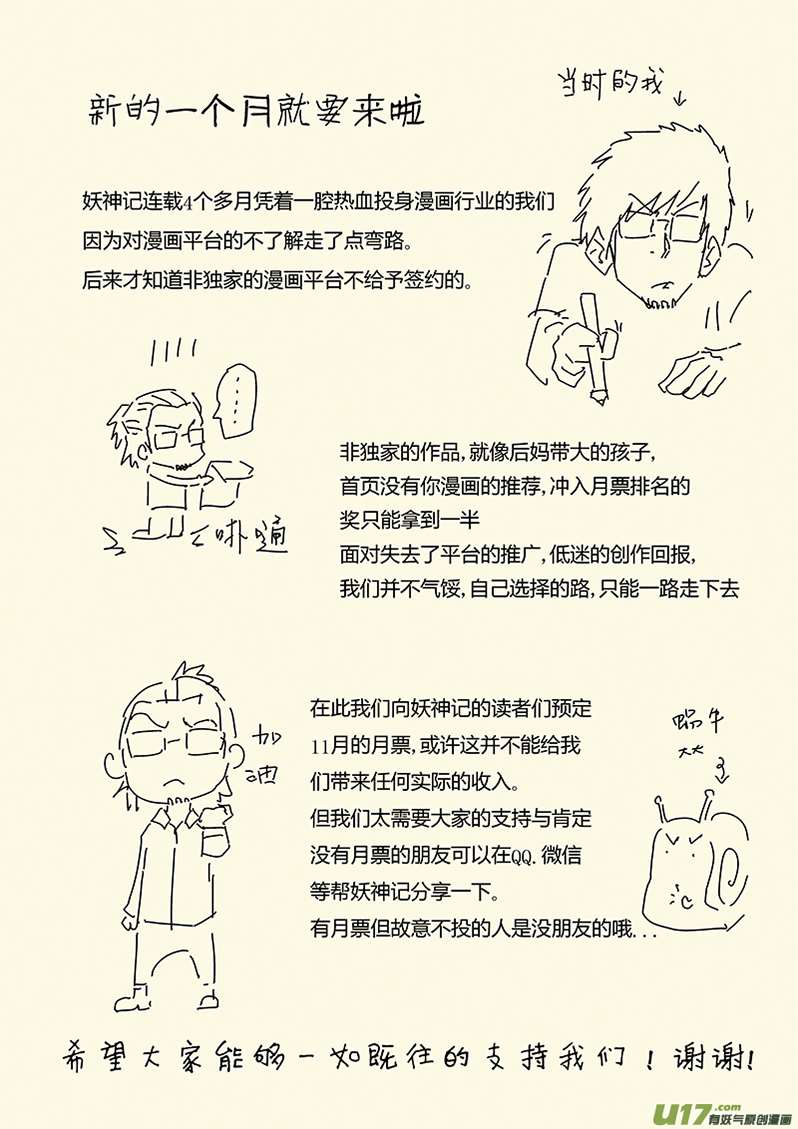 新的一个月就要来啦
当时的我
妖神记连载4个多月凭着一腔热血投身漫画行业的我们
因为对漫画平台的不了解走了点弯路。
后来才知道非独家的漫画平台不给予签约的。
......
噗通
非独家的作品,就像后妈带大的孩子,
首页没有你漫画的推荐,冲入月票排名的
奖只能拿到一半
面对失去了平台的推广,低迷的创作回报,
我们并不气馁,自己选择的路,只能一路走下去
加
油
在此我们向妖神记的读者们预定
11月的月票,或许这并不能给我
们带来任何实际的收入。
但我们太需要大家的支持与肯定
没有月票的朋友可以在QQ.微信
等帮妖神记分享一下。
有月票但故意不投的人是没朋友的哦...
蜗牛
希望大家能够一如既往的支持我们!谢谢!
U17.com
有妖气原创漫画